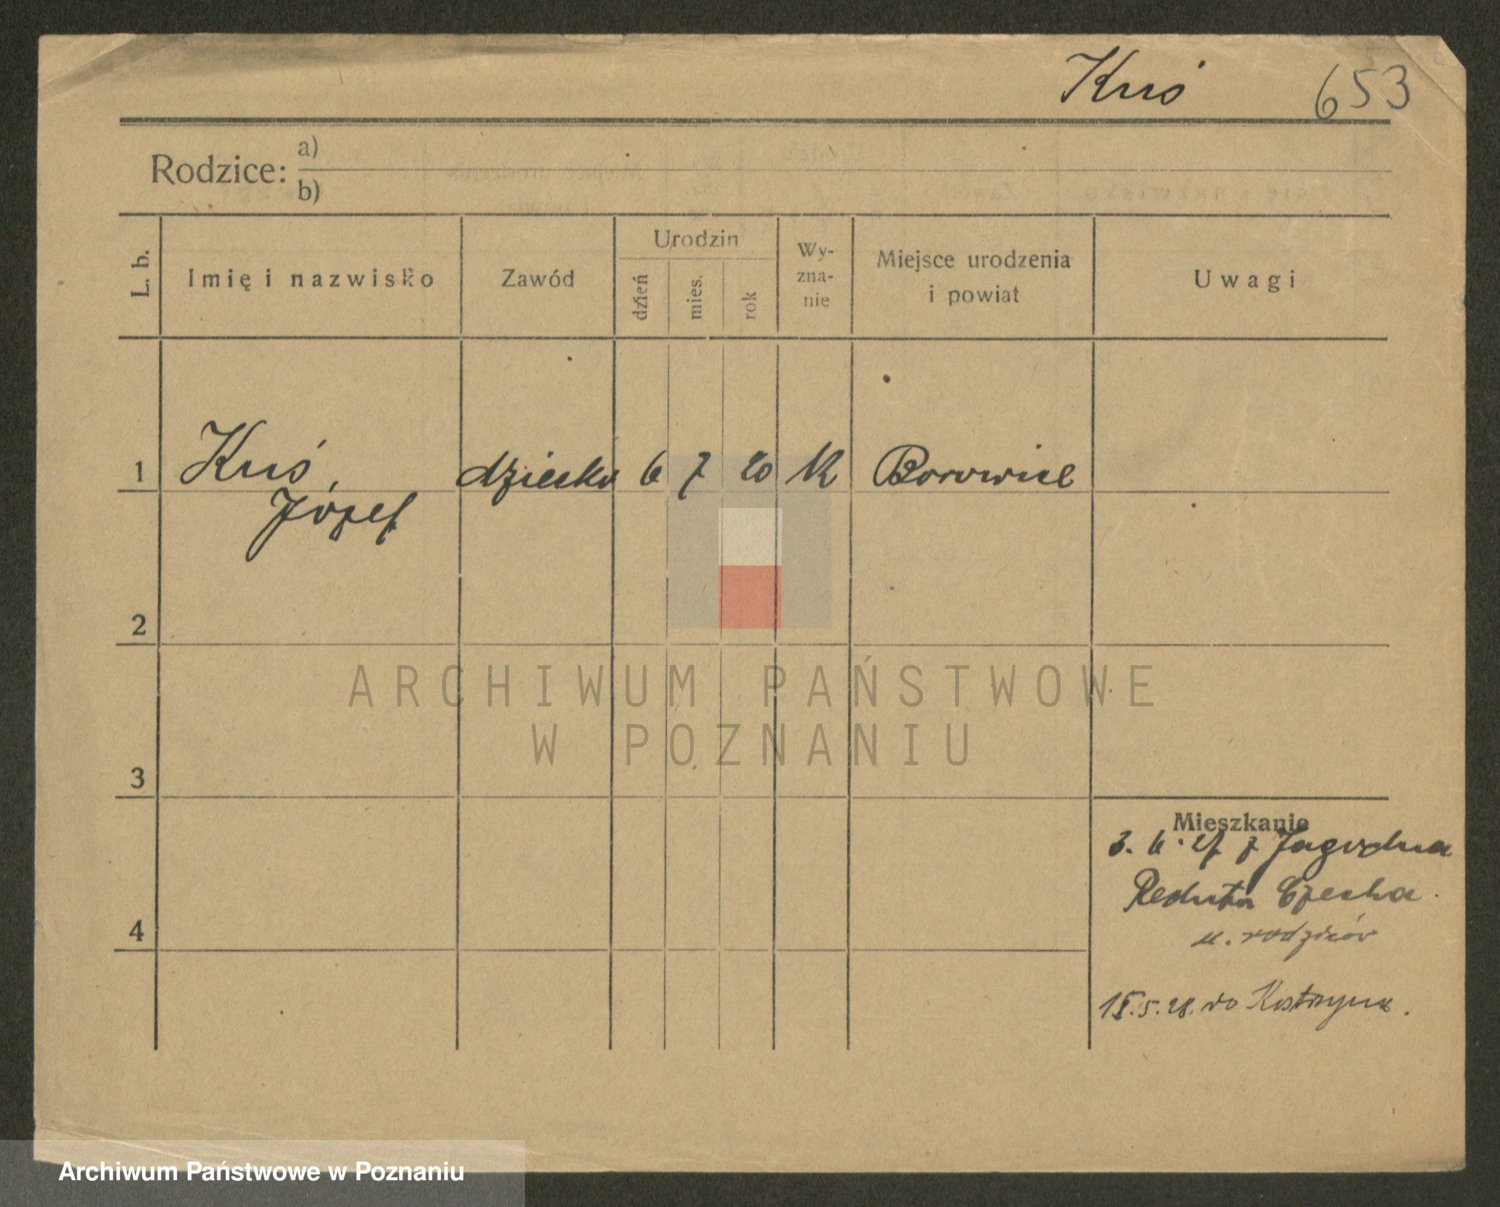 Kuś 653
Rodzice: a)
b)
L. b. Imię i nazwisko Zawód Urodzin dzień mies. rok Wy-zna-nie Miejsce urodzenia i powiat Uwagi
1 Kuś, dziecko 6 7 20 K Borowiec
Józef
2
ARCHIWUM PAŃSTWOWE
W POZNANIU
3
Mieszkanie
3. z Jagodna
Reduta Czecha.
u. rodziców
4
5. 28. do Kostrzyna.
Archiwum Państwowe w Poznaniu